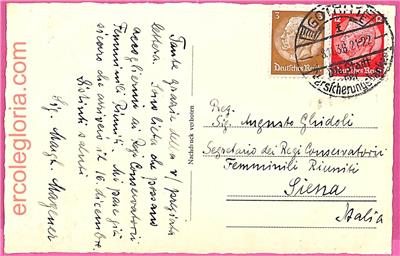 ercolegloria.com
Tante grazie della v/ pregiata
lettera. Sono lieta che possano
accogliermi ai Regi Conservatorii
Femminili Riuniti. Mi pare più
sicuro che arrivero il 16 dicembre.
Distinti saluti
Sig. Margh. Wagener
Nachdruck verboten
3
Deutsches Reich
12
Deutsches Reich
38.21-22
Versicherungs
Preg.
Sig. Augusto Ghidoli
Segretario dei Regi Conservatorii
Femminili Riuniti
Siena
Italia